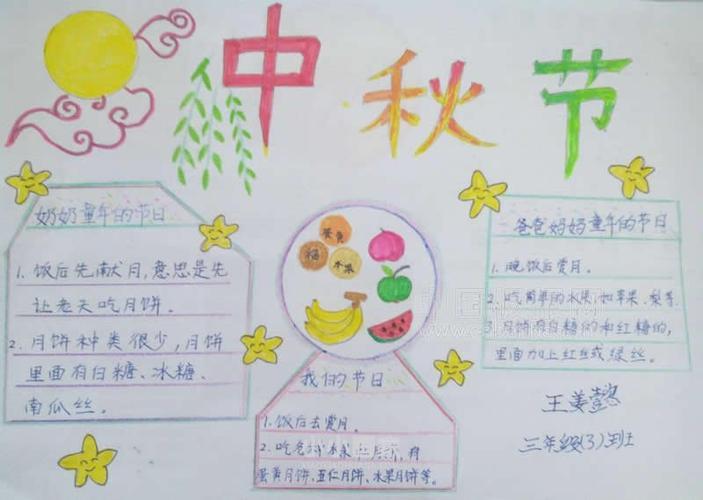 中秋节
奶奶童年的节日
1. 饭后先献月，意思是先
让老天吃月饼。
2. 月饼种类很少，月饼
里面有白糖、冰糖、
南瓜丝。
蛋黄
梅
水果
我们的节日
1. 饭后去赏月。
2. 吃各种水果
蛋黄月饼、五仁月饼、水果月饼等。
爸爸妈妈童年的节日
1. 晚饭后赏月。
2. 吃简单的水果如苹果、梨等
3. 月饼有白糖的和红糖的，
里面加上红丝或绿丝。
王姜懿
三年级(3)班